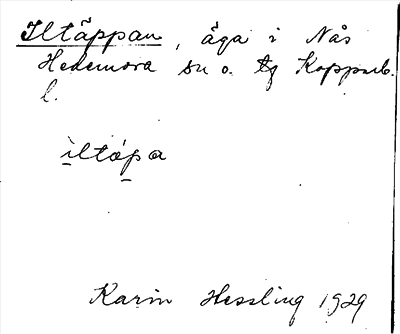 Iltäppan, äga i Nås
Hedemora sn o. tg Kopparb.
l.
ìltápa
Karin Hessling 1929